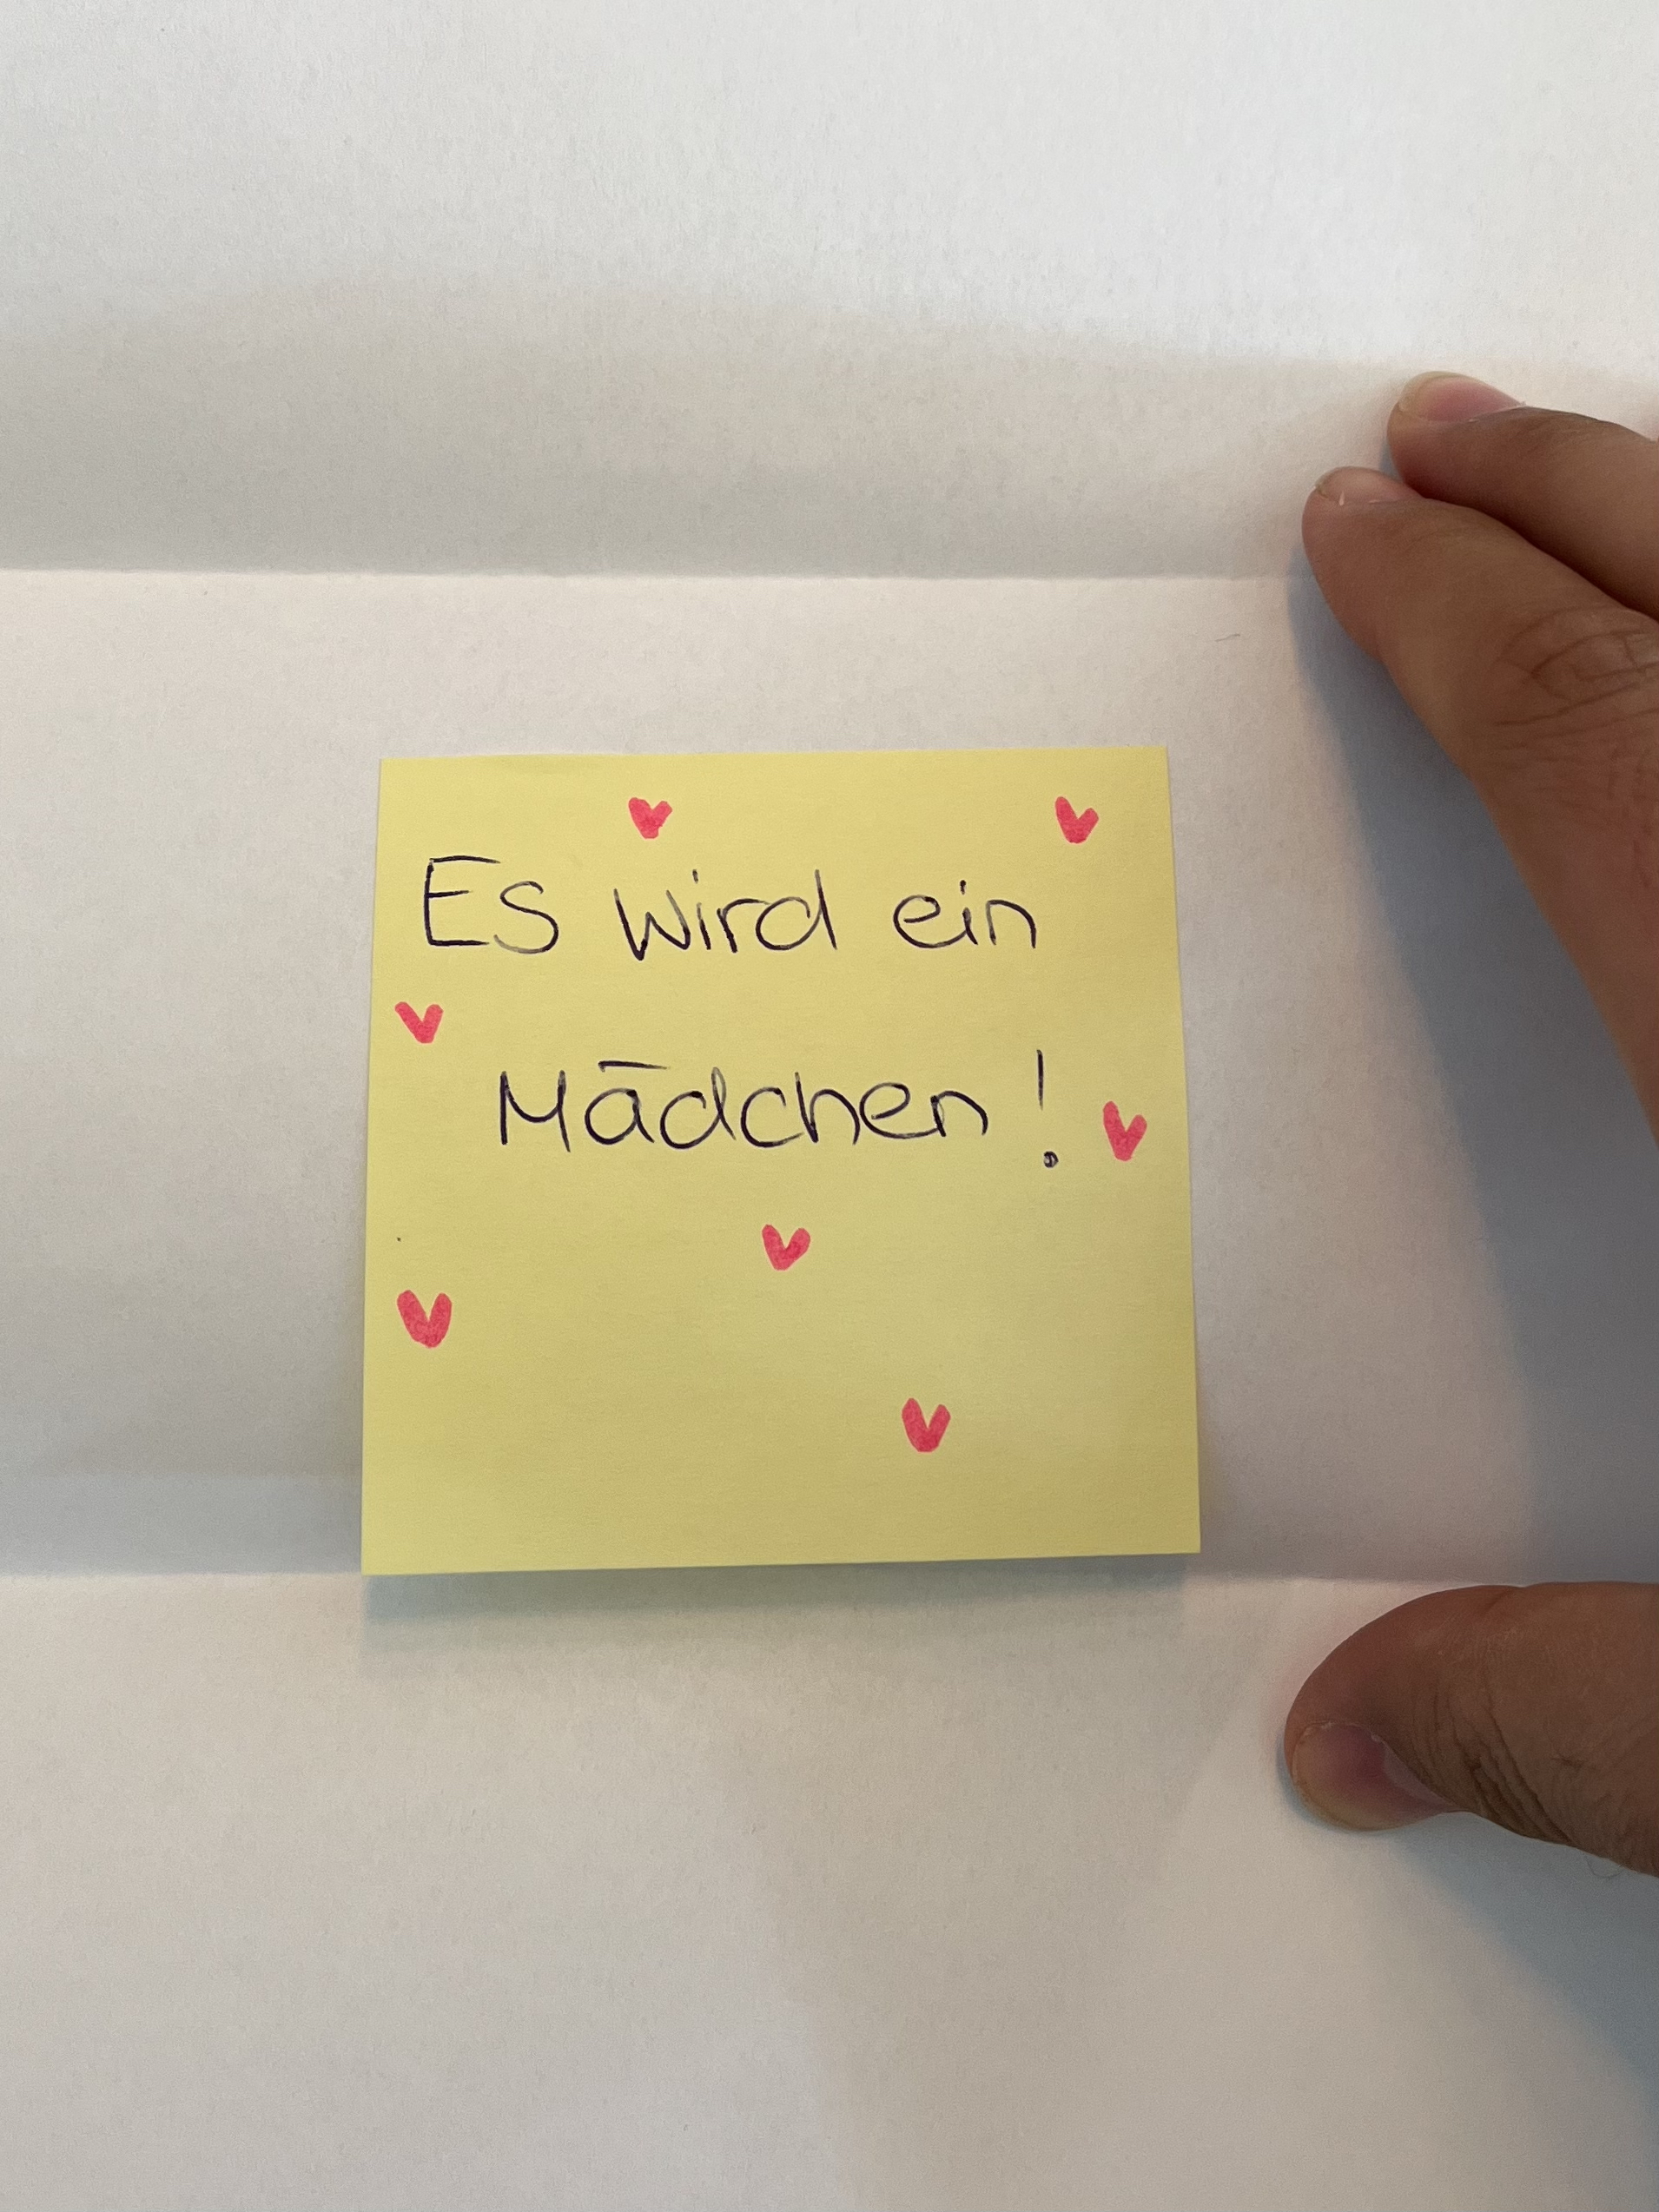 Es wird ein
Mädchen!